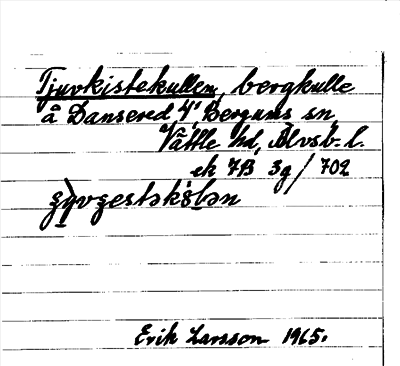 Tjuvkistekullen, bergkulle
å Dansered 4¹ Bergums sn,
Vättle hd, Älvsb. l.
ek 7B 3g/702
Erik Larsson 1965.